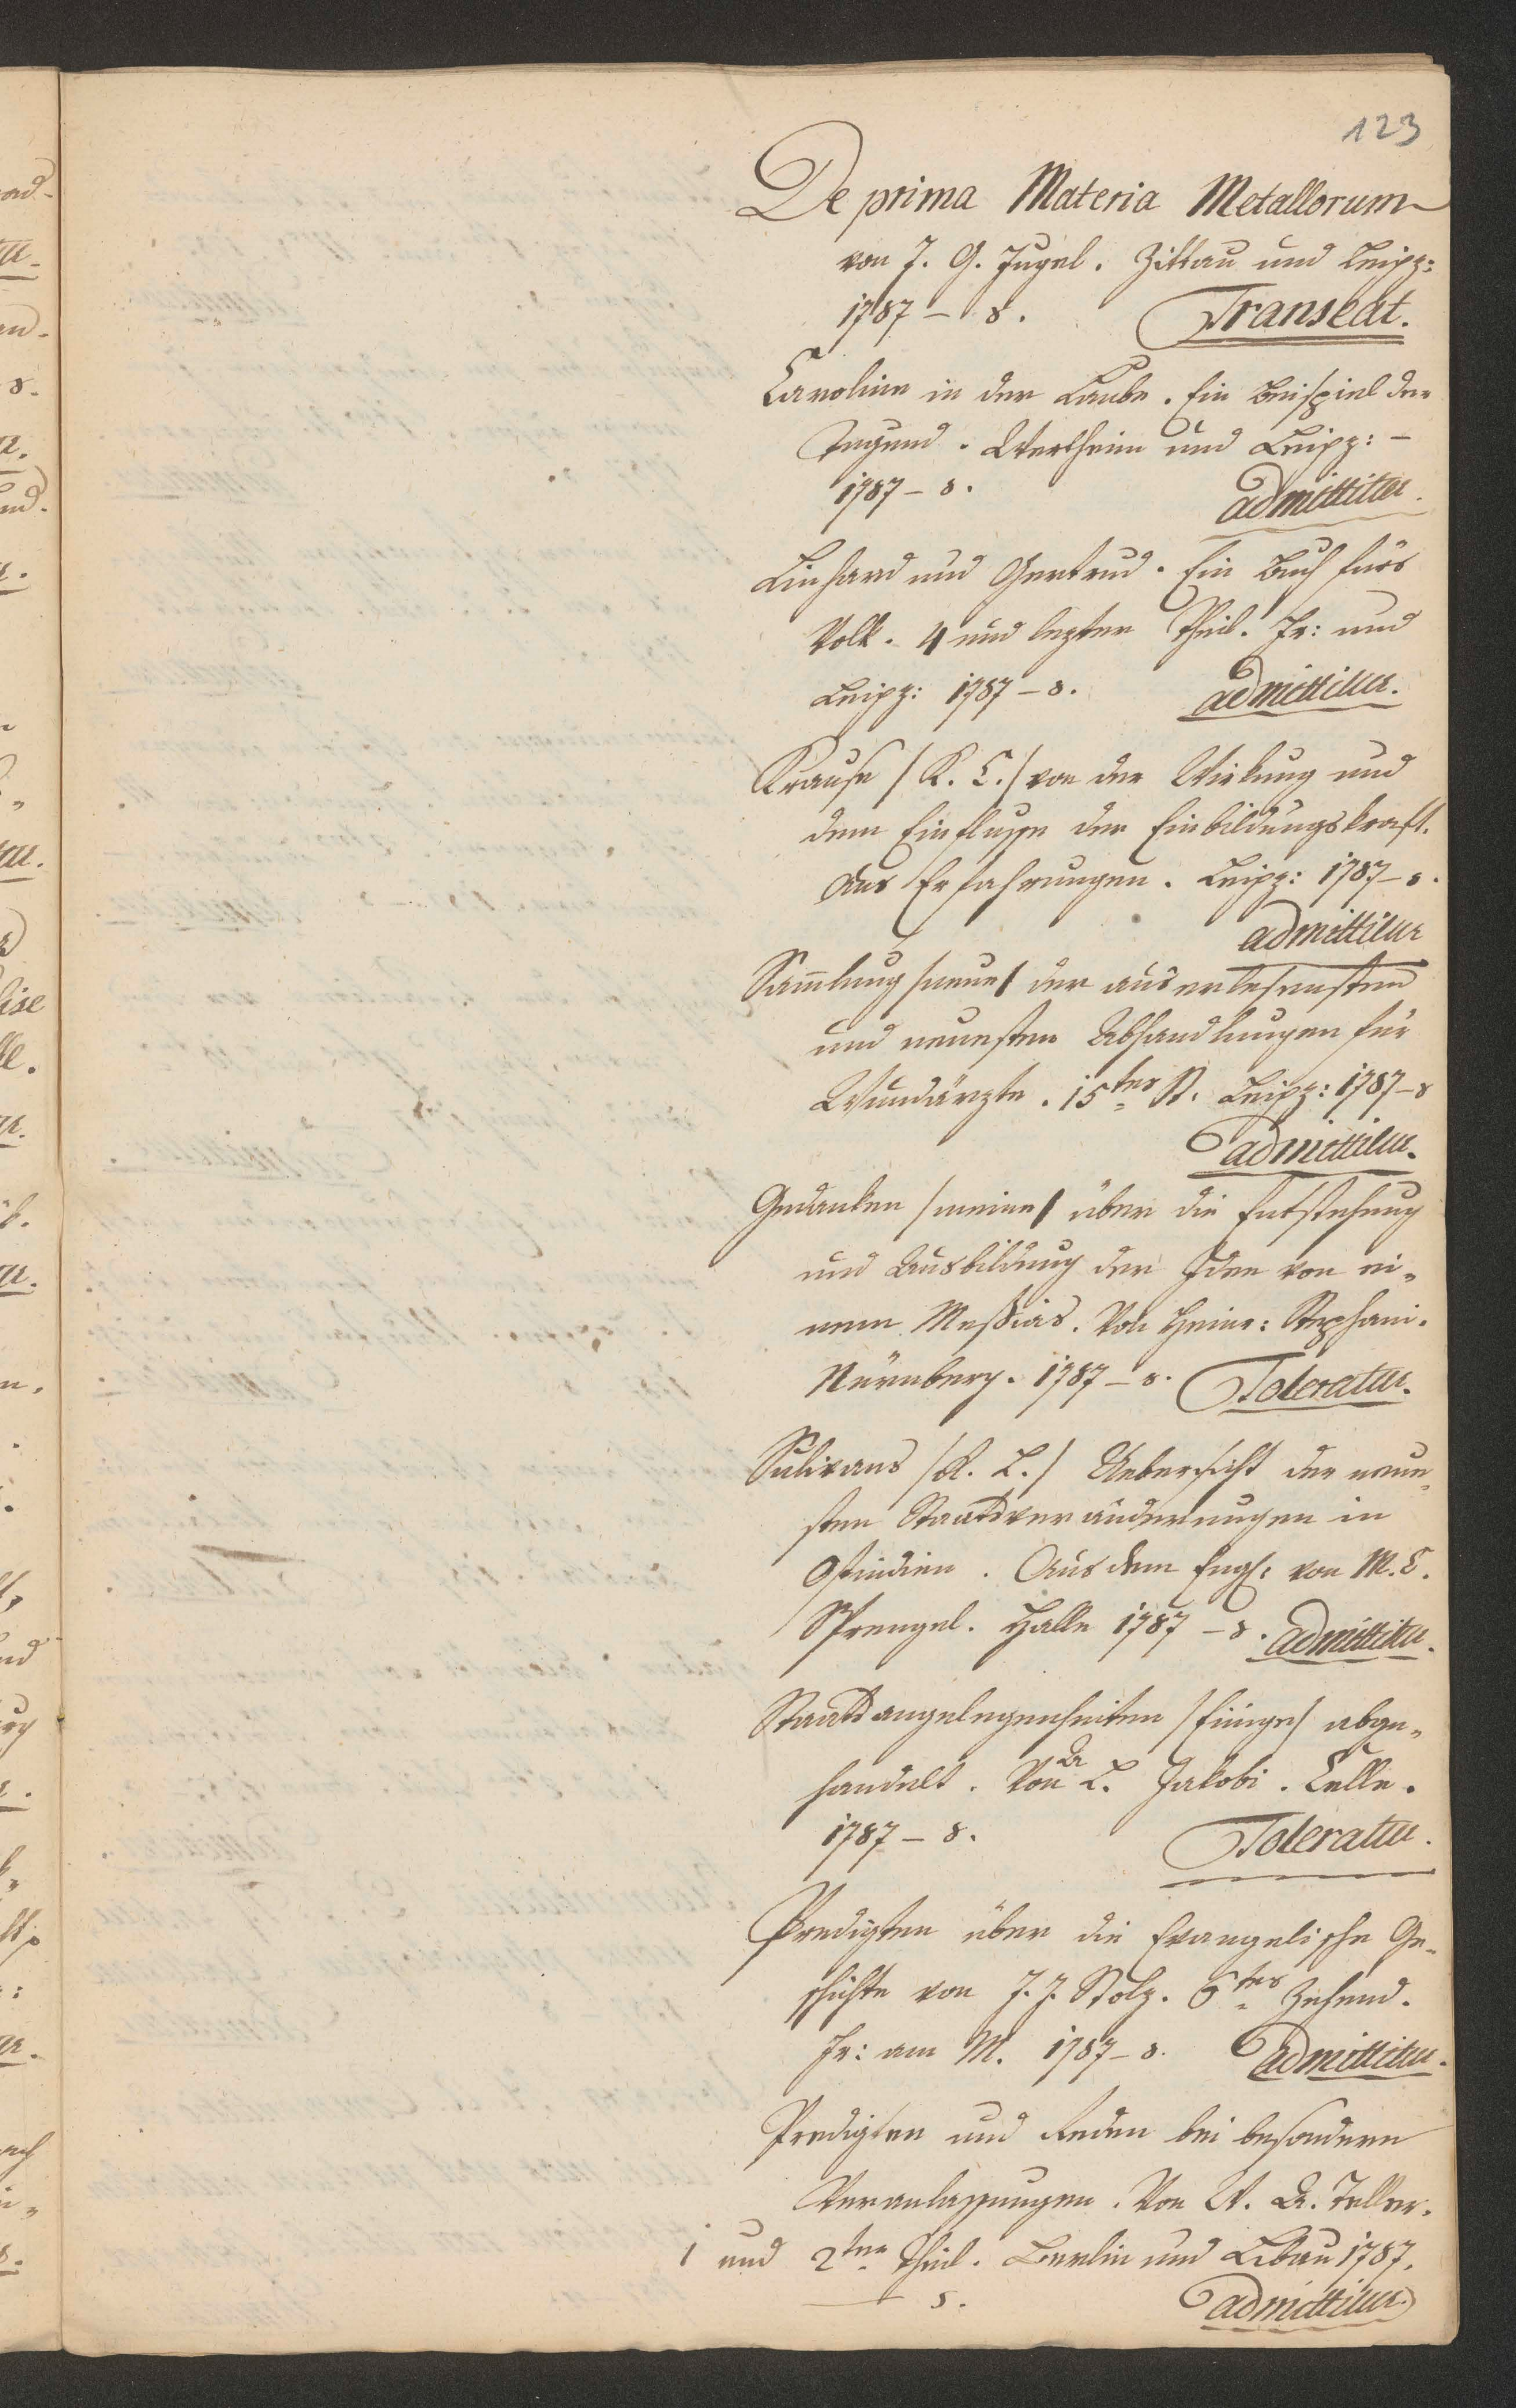 123
De prima Materia Metallorum
von J. G. Jugel. Zittau und Leipz:
1787 – 8. Transeat.
Caroline in der Laube. Ein Beispiel der
Tugend. Wertheim und Leipz: –
1787 – 8. admittitur.
Linhard und Gertrud. Ein Buch fürs
Volk. 4 und lezter Theil. Fr: und
Leipz: 1787 – 8. admittitur.
Krause /K. C./ von der Wirkung und
dem Einflusse der Einbildungskraft.
Aus Erfahrungen. Leipz: 1787 – 8.
admittitur
Sam̅lung /neue/ der auserlesensten
und neuesten Abhandlungen für
Wundärzte. 15tes St. Leipz: 1787 – 8
admittitur.
Gedanken /meine/ über die Entstehung
und Ausbildung der Idee von ei„
nem Meßias. Von Heinr: Stephani.
Nürnberg. 1787 – 8. Toleratur.
Sulivans /R. L./ Uebersicht der neue„
sten Staatsveränderungen in
Ostindien. Aus dem Engl: von M. C.
Sprengel. Halle 1787 – 8. admittitur.
Staatsangelegenheiten /Einige/ abge„
handelt. Von L. Jakobi. Celle.
1787 – 8. Toleratur.
Predigten über die Evangelische Ge„
schichte von J. J. Stolz. 6tes Zehend.
Fr: am M. 1787 – 8. admittitur.
Predigten und Reden bei besondern
Veranlassungen. Von W. A. Teller.
1 und 2ter Theil. Berlin und Libau 1787.
– 8. admittitur.